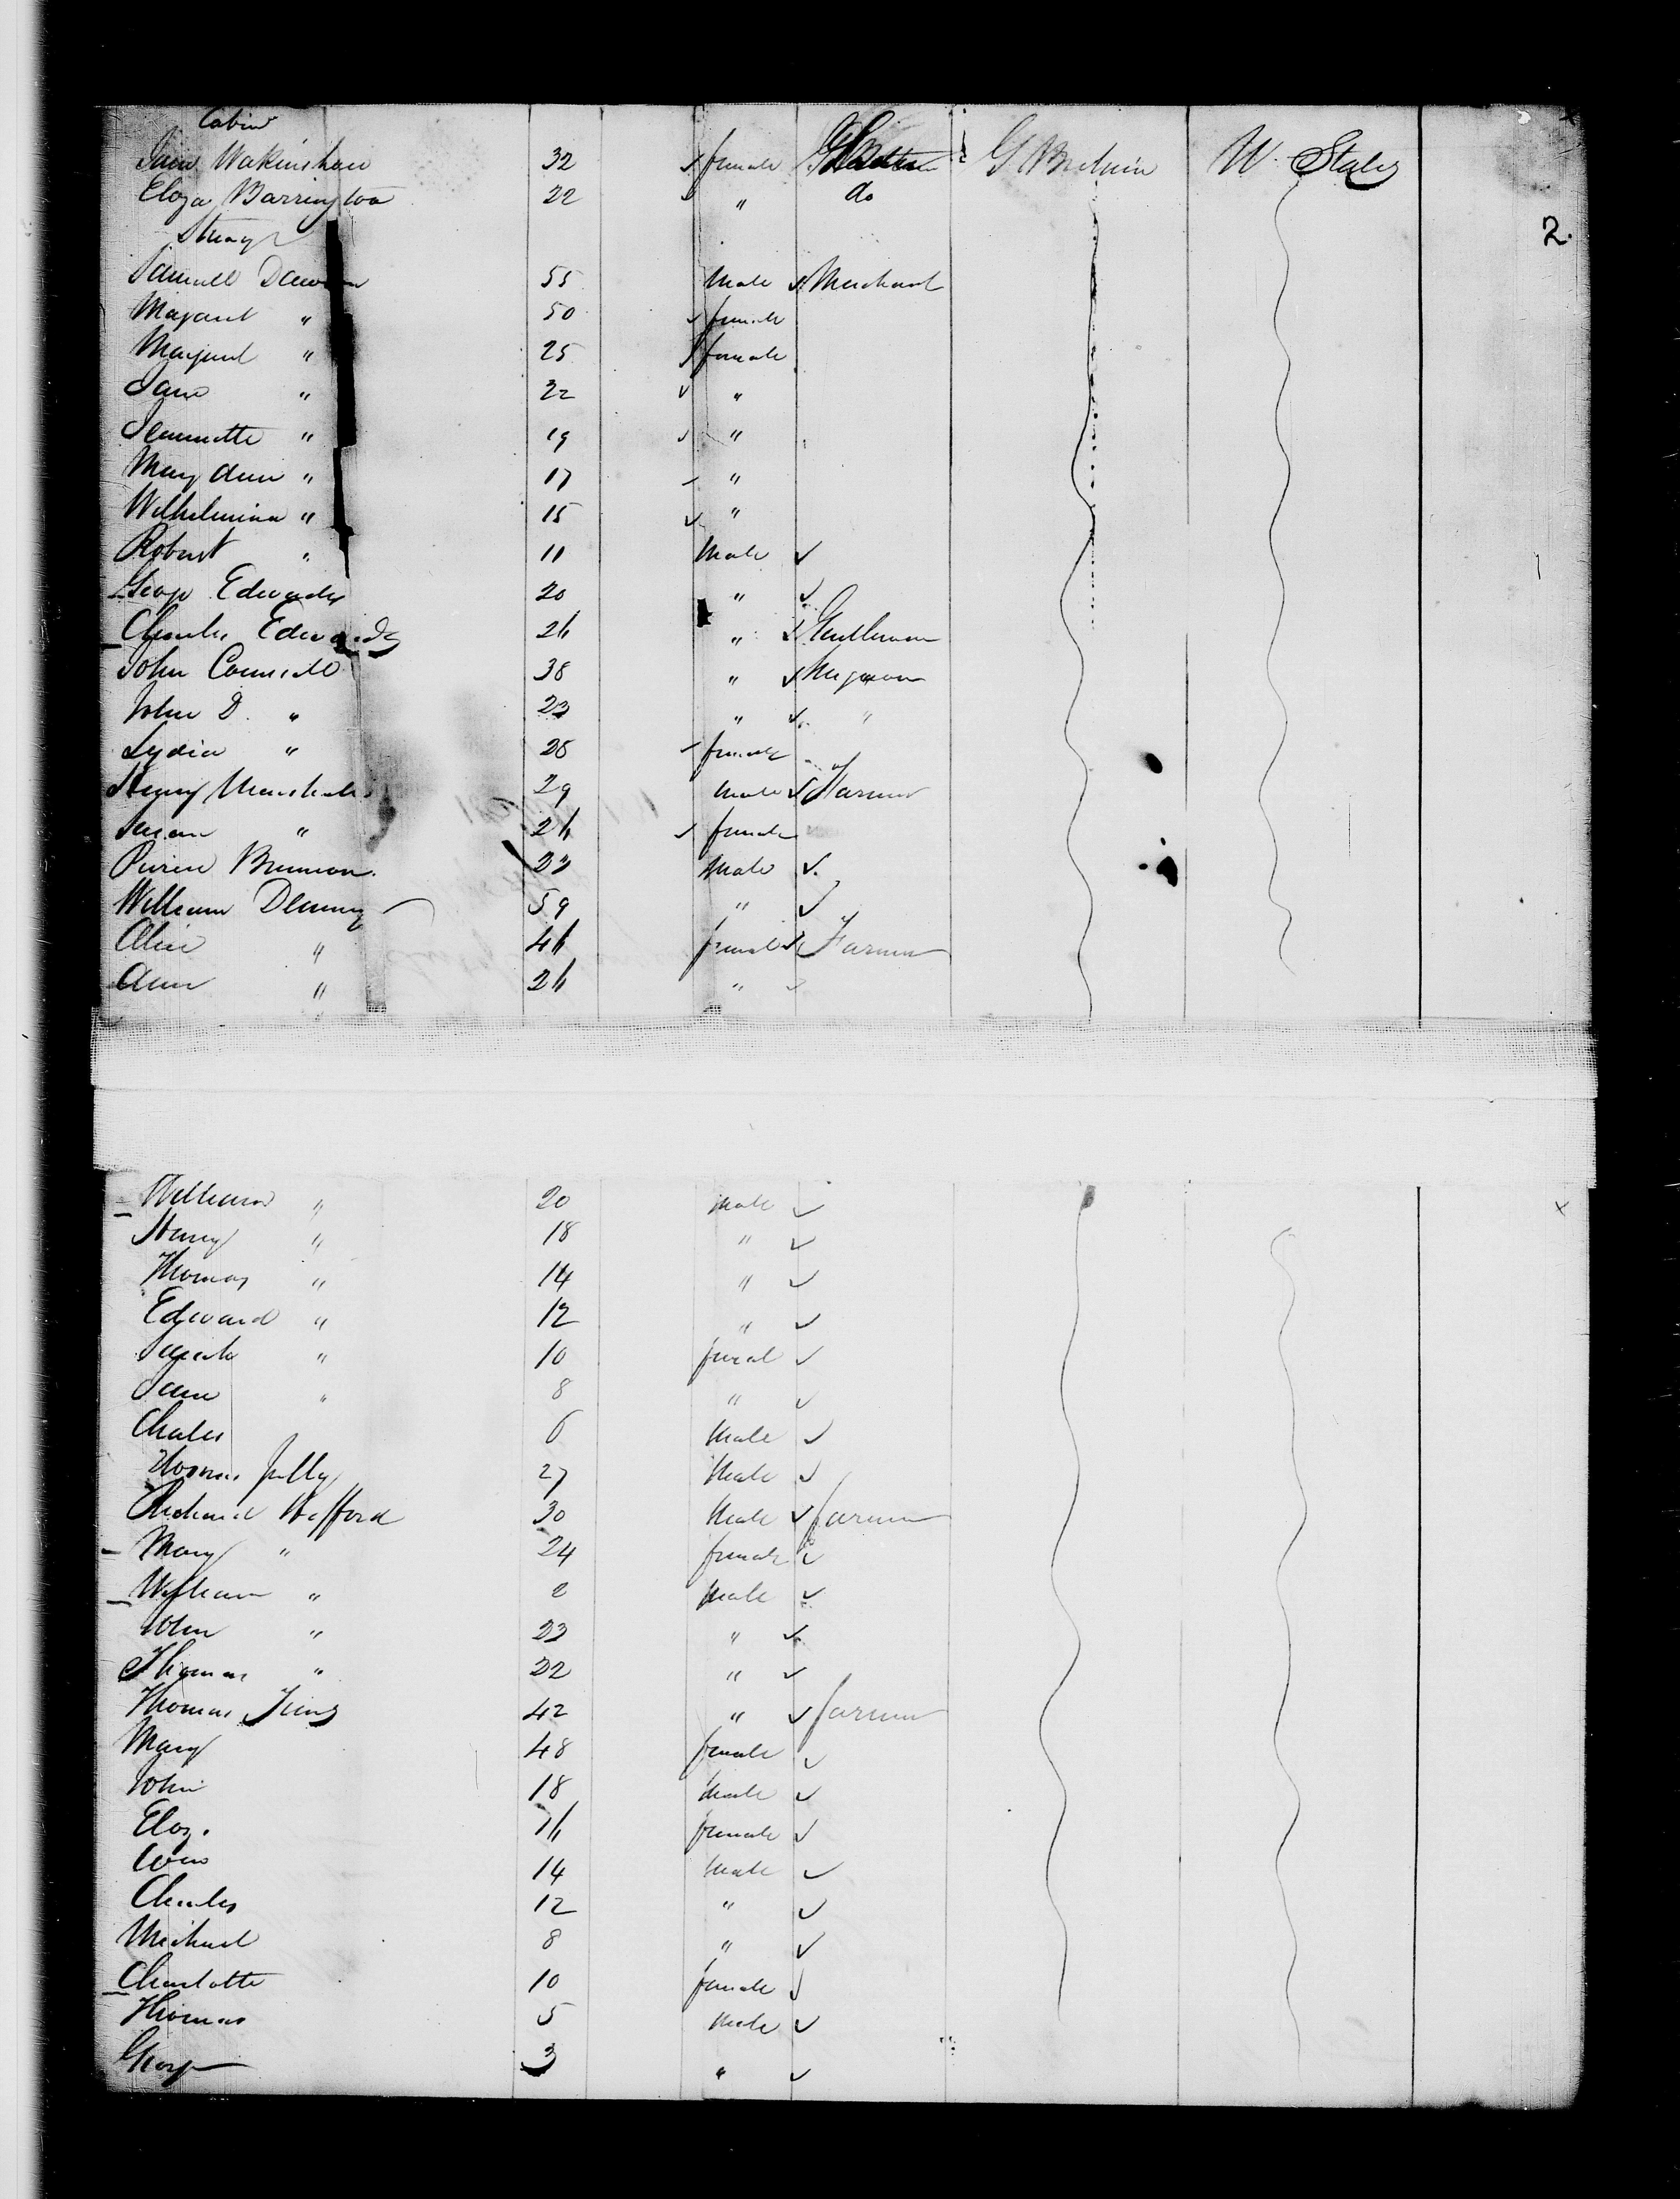 Cabin
Jane Wakinshaw 32 female G Britain U. States
Eliza Barrington 22 " do
2.
Steerage
Samuell Dawson 55 Male Merchant
Margaret " 50 female
Margaret " 25 female
Jane " 22 "
Jeannette " 19 "
Mary Ann " 17 "
Wilhelmina " 15 "
Robert " 11 Male
George Edwards 20 "
Charles Edwards 26 " Gentleman
John 38 "
John D. " 23 " "
Lydia " 28 female
Henry Marshall 29 Male Farmer
Susan " 26 female
Brennan 23 Male
William Denny 59 "
Alice " 46 female Farmer
Ann " 26 "
William " 20 Male
Henry " 18 "
Thomas " 14 "
Edward " 12 "
Sarah " 10 femal
Jane " 8 "
Charles 6 Male
Thomas Jully 27 Male
Richard Hefford 30 Male farmer
Mary " 24 female
William " 2 Male
John " 23 "
Thomas " 22 "
Thomas 42 " farmer
Mary 48 female
John 18 Male
Eliz. 16 female
14 Male
Charles 12 "
Michael 8 "
Charlotte 10 female
Thomas 5 Male
George 3 "